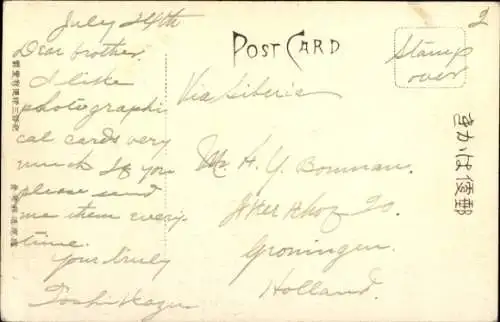 July 24th
Dear brother.
I like
photographi
cal cards very
much. If you
please send
me them every
time.
Your truly
Toshikazu
POST CARD
Stamp
over
2
Via Siberia
Mr. H. Y. Bouman.
Groningen.
Holland.
きかは便郵